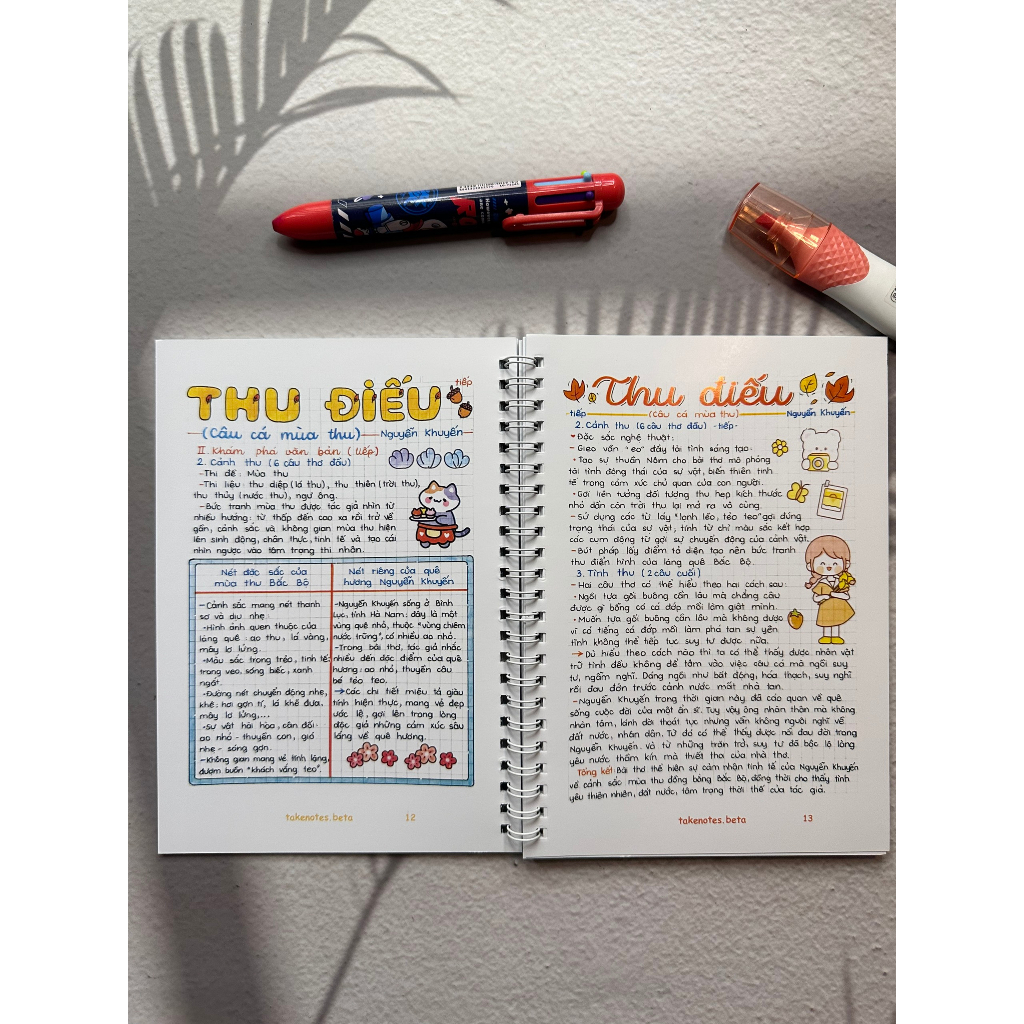 THU ĐIẾU
tiếp
(Câu cá mùa thu) - Nguyễn Khuyến
II. Khám phá văn bản (tiếp)
2. Cảnh thu (6 câu thơ đầu)
- Thi đề: Mùa thu
- Thi liệu: thu diệp (lá thu), thu thiên (trời thu),
thu thủy (nước thu), ngư ông.
- Bức tranh mùa thu được tác giả nhìn từ
nhiều hướng: từ thấp đến cao xa rồi trở về
gần, cảnh sắc và không gian mùa thu hiện
lên sinh động, chân thực, tinh tế và tạo cái
nhìn ngược vào tâm trạng thi nhân.
Nét đặc sắc của
mùa thu Bắc Bộ
- Cảnh sắc mang nét thanh
sơ và dịu nhẹ
• Hình ảnh quen thuộc của
làng quê: ao thu, lá vàng,
mây lơ lửng.
• Màu sắc trong trẻo, tinh tế:
trong veo, sóng biếc, xanh
ngắt.
• Đường nét chuyển động nhẹ,
khẽ: hơi gợn tí, lá khẽ đưa,
mây lơ lửng,...
• Sự vật hài hòa, cân đối:
ao nhỏ - thuyền con, gió
nhẹ - sóng gợn.
- Không gian mang vẻ tĩnh lặng,
đượm buồn "khách vắng teo".
Nét riêng của quê
hương Nguyễn Khuyến
- Nguyễn Khuyến sống ở Bình
Lục, tỉnh Hà Nam: đây là một
vùng quê nhỏ, thuộc "vùng chiêm
nước trũng", có nhiều ao nhỏ.
- Trong bài thơ, tác giả nhắc
nhiều đến đặc điểm của quê
hương: ao nhỏ, thuyền câu
bé tẻo teo.
→ Các chi tiết miêu tả giàu
tính hiện thực, mang vẻ đẹp
ước lệ, gợi lên trong lòng
độc giả những cảm xúc sâu
lắng về quê hương.
takenotes.beta 12
Thu điếu
tiếp (Câu cá mùa thu) Nguyễn Khuyến
2. Cảnh thu (6 câu thơ đầu) - tiếp -
Đặc sắc nghệ thuật:
- Gieo vần "eo" đầy tài tình sáng tạo:
• Tạo sự thuần Nôm cho bài thơ mô phỏng
tài tình động thái của sự vật, biến thiên tinh
tế trong cảm xúc chủ quan của con người.
• Gợi liên tưởng đối tượng thu hẹp kích thước
nhỏ dần còn trời thu lại mở ra vô cùng.
- Sử dụng các từ láy "lạnh lẽo, tẻo teo" gợi đúng
trạng thái của sự vật, tính từ chỉ màu sắc kết hợp
các cụm động từ gợi sự chuyển động của cảnh vật.
- Bút pháp lấy điểm tả diện tạo nên bức tranh
thu điển hình của làng quê Bắc Bộ.
3. Tình thu (2 câu cuối)
- Hai câu thơ có thể hiểu theo hai cách sau:
• Ngồi tựa gối buông cần lâu mà chẳng câu
được gì bỗng có cá đớp mồi làm giật mình.
• Muốn tựa gối buông cần lâu mà không được
vì có tiếng cá đớp mồi làm phá tan sự yên
tĩnh không thể tiếp tục suy tư được nữa.
→ Dù hiểu theo cách nào thì ta có thể thấy được nhân vật
trữ tình đều không để tâm vào việc câu cá mà ngồi suy
tư, ngẫm nghĩ. Dáng ngồi như bất động, hóa thạch, suy nghĩ
rồi đau đớn trước cảnh nước mất nhà tan.
- Nguyễn Khuyến trong thời gian này đã cáo quan về quê
sống cuộc đời của một ẩn sĩ. Tuy vậy ông nhàn thân mà không
nhàn tâm, lánh đời thoát tục nhưng vẫn không nguôi nghĩ về
đất nước, nhân dân. Từ đó có thể thấy được nỗi đau đời trong
Nguyễn Khuyến và từ những trăn trở, suy tư đã bộc lộ lòng
yêu nước thầm kín mà thiết tha của nhà thơ.
Tổng kết: Bài thơ thể hiện sự cảm nhận tinh tế của Nguyễn Khuyến
về cảnh sắc mùa thu đồng bằng Bắc Bộ, đồng thời cho thấy tình
yêu thiên nhiên, đất nước, tâm trạng thời thế của tác giả.
takenotes.beta 13